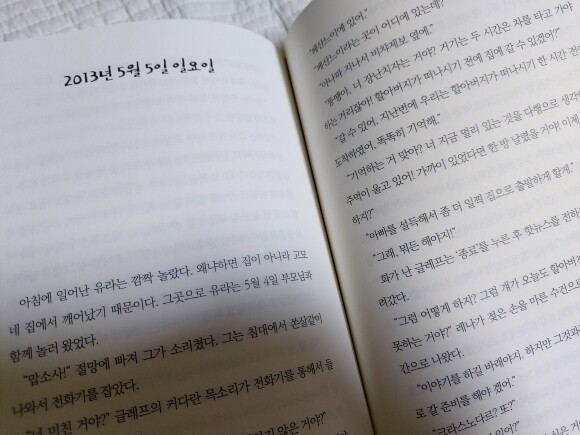 2013년 5월 5일 일요일
아침에 일어난 유라는 깜짝 놀랐다. 왜냐하면 집이 아니라 고모
네 집에서 깨어났기 때문이다. 그곳으로 유라는 5월 4일 부모님과
함께 놀러 왔었다.
"맙소사!" 절망에 빠져 그가 소리쳤다. 그는 침대에서 쏜살같이
나와서 전화기를 잡았다.
"너 미친 거야?" 글레프의 커다란 목소리가 전화기를 통해서 들
않은 거야?"
에 있어."
라는 곳이 어디에 있는데?"
지나서 비챠제보 옆에."
"똥땡아, 너 장난치자는 거야? 거기는 두 시간은 차를 타고 가야
하는 거리잖아! 할아버지가 떠나시기 전에 집에 갈 수 있겠어?"
"갈 수 있어. 지난번에 우리는 할아버지가 떠나시기 한 시간 전
도착하였어. 똑똑히 기억해."
"기억하는 거 맞아? 너 지금 멀리 있는 것을 다행으로 생각
주먹이 울고 있어! 가까이 있었다면 한 방 날렸을 거야! 이제
하지?"
"아빠를 설득해서 좀 더 일찍 집으로 출발하게 할게."
"그래. 뭐든 해야지!"
화가 난 글레프는 '종료'를 누른 후 핫뉴스를 전하
려갔다.
"그럼 어떻게 하지? 그럼 걔가 오늘도 할아버지
못하는 거야?" 레나가 젖은 손을 마른 수건으
간으로 나왔다.
"이야기를 하길 바래야지. 하지만 그것과
로 갈 준비를 해야 겠어."
"크라스노다르? 또?"